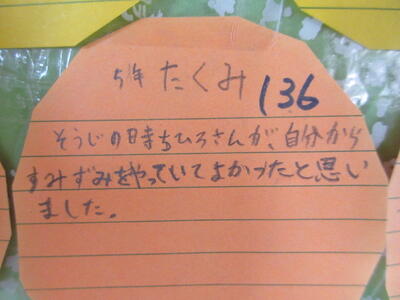 5年 たくみ 136
そうじの時ちひろさんが、自分から
すみずみをやっていてよかったと思い
ました。